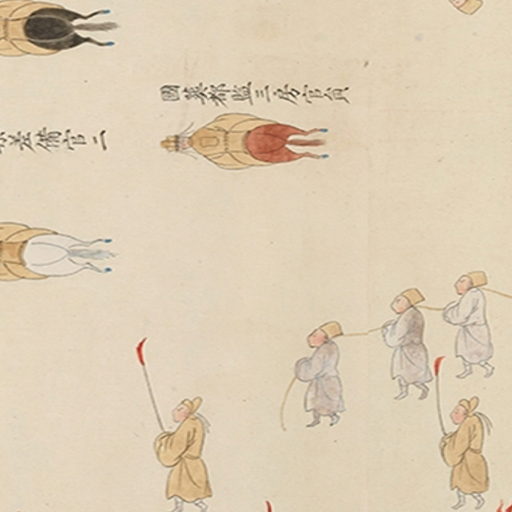 國葬都監三房官員
差備官二